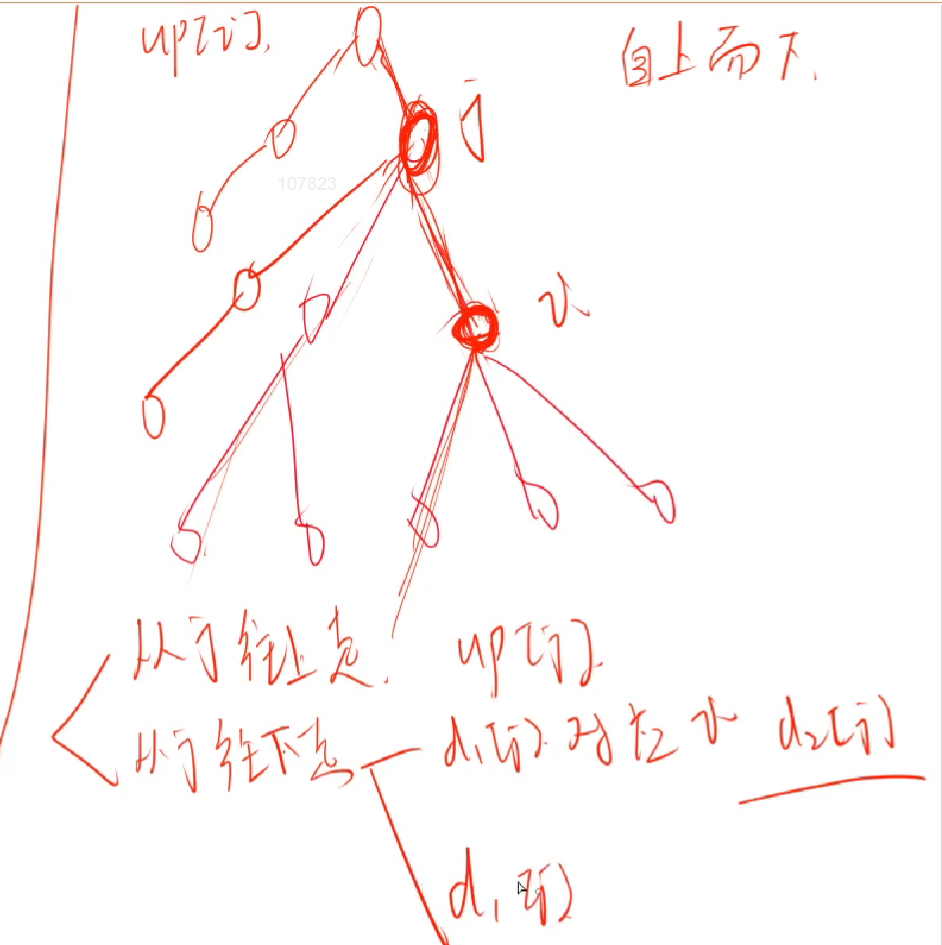 up[j]. 自上而下.
107823
j
从j往上走. up[j].
从j往下走 d₁[j] 对应 d₂[j]
d₁[j]